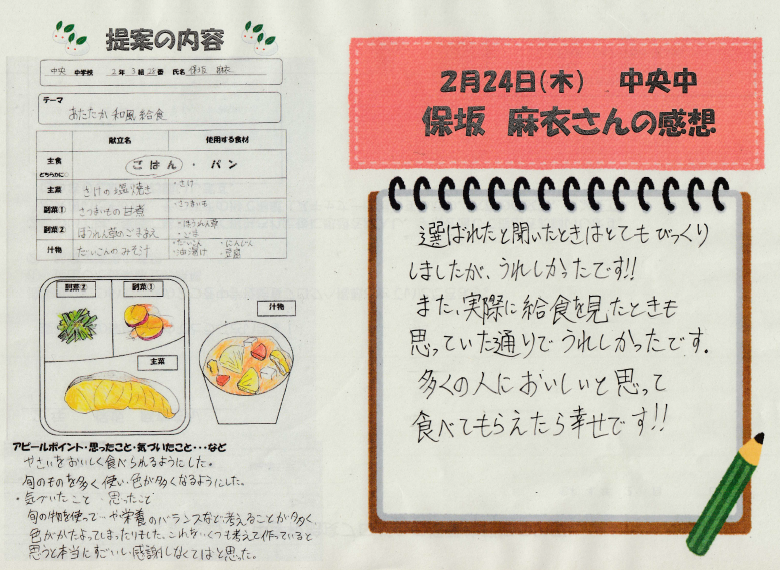 提案の内容
中央 中学校 2年 3組 28番 氏名 保坂 麻衣
テーマ
あたたか 和風 給食
献立名 使用する食材
主食 どちらかに○ ごはん ・ パン
主菜 さけの塩焼き ・さけ
副菜① さつまいもの甘煮 ・さつまいも
副菜② ほうれん草のごまあえ ・ほうれん草 ・ごま
汁物 だいこんのみそ汁 ・だいこん ・にんじん
・油揚げ ・豆腐
副菜② 副菜①
主菜
汁物
アピールポイント・思ったこと・気づいたこと・・・など
やさいをおいしく食べられるようにした。
旬のものを多く使い、色が多くなるようにした。
・気づいたこと 思ったこと
旬の物を使って 栄養のバランスなど考えることが多く、
色がかたよってしまったりしました。これをいくつも考えて作っていると
思うと本当にすごいし感謝しなくてはと思った。
2月24日(木) 中央中
保坂 麻衣さんの感想
選ばれたと聞いたときはとてもびっくり
しましたが、うれしかったです!!
また、実際に給食を見たときも
思っていた通りでうれしかったです。
多くの人においしいと思って
食べてもらえたら幸せです!!